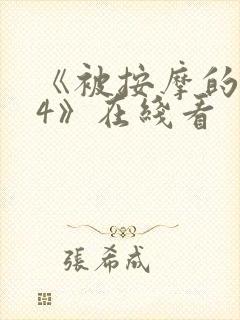 《被按摩的
4》在线看
張希成